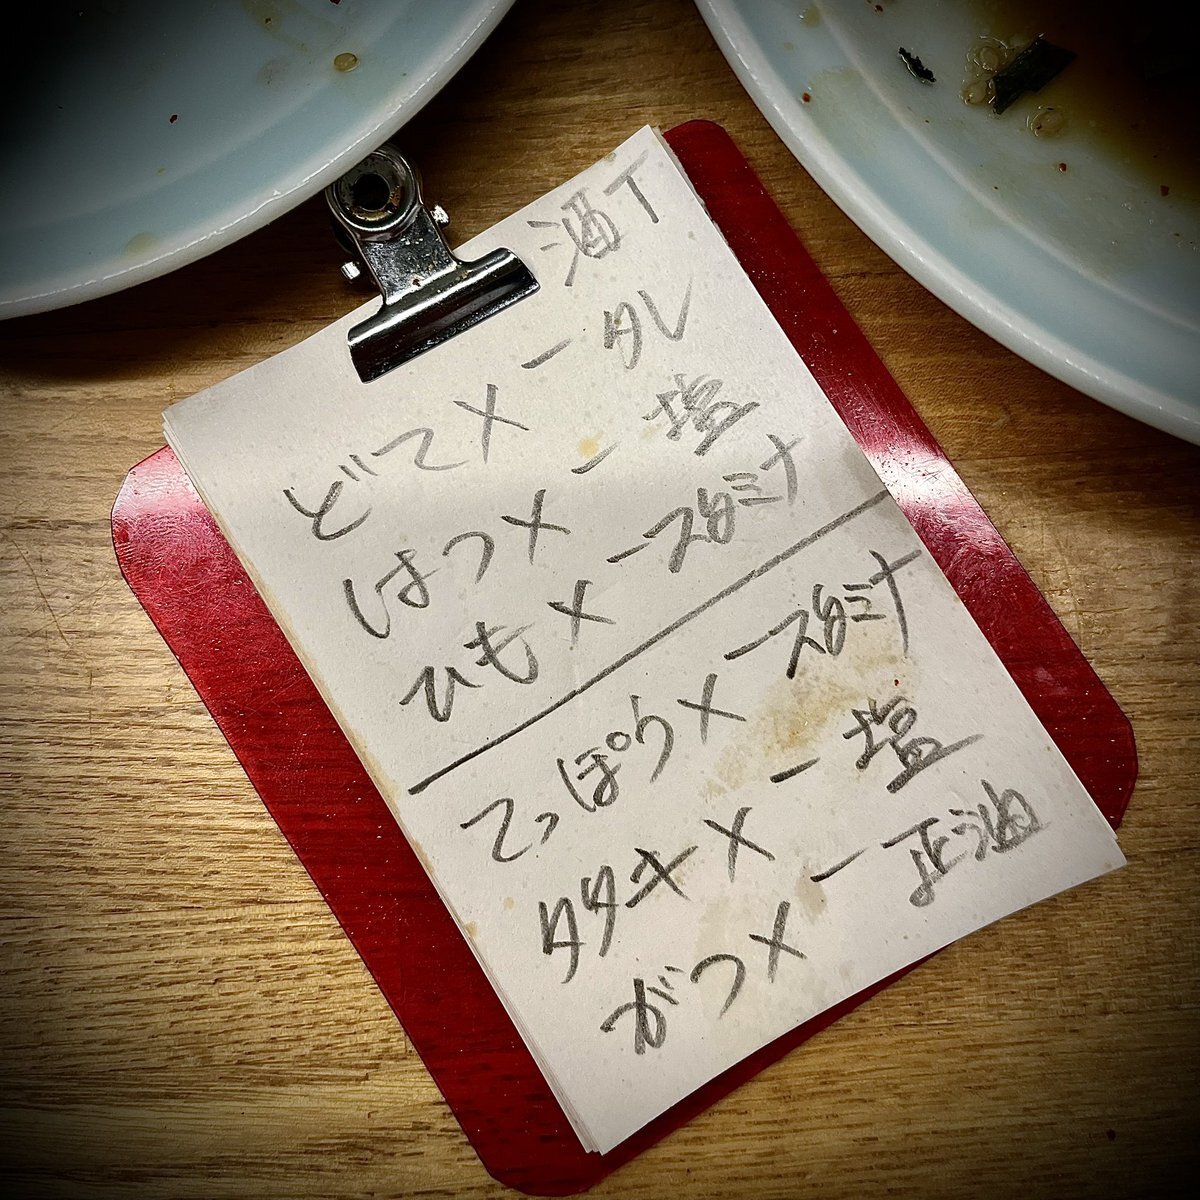 酒T
どて× ー タレ
はつ× ー 塩
ひも× ースタミナ
てっぽう× ースタミナ
タタキ× ー 塩
がつ× ー 正油